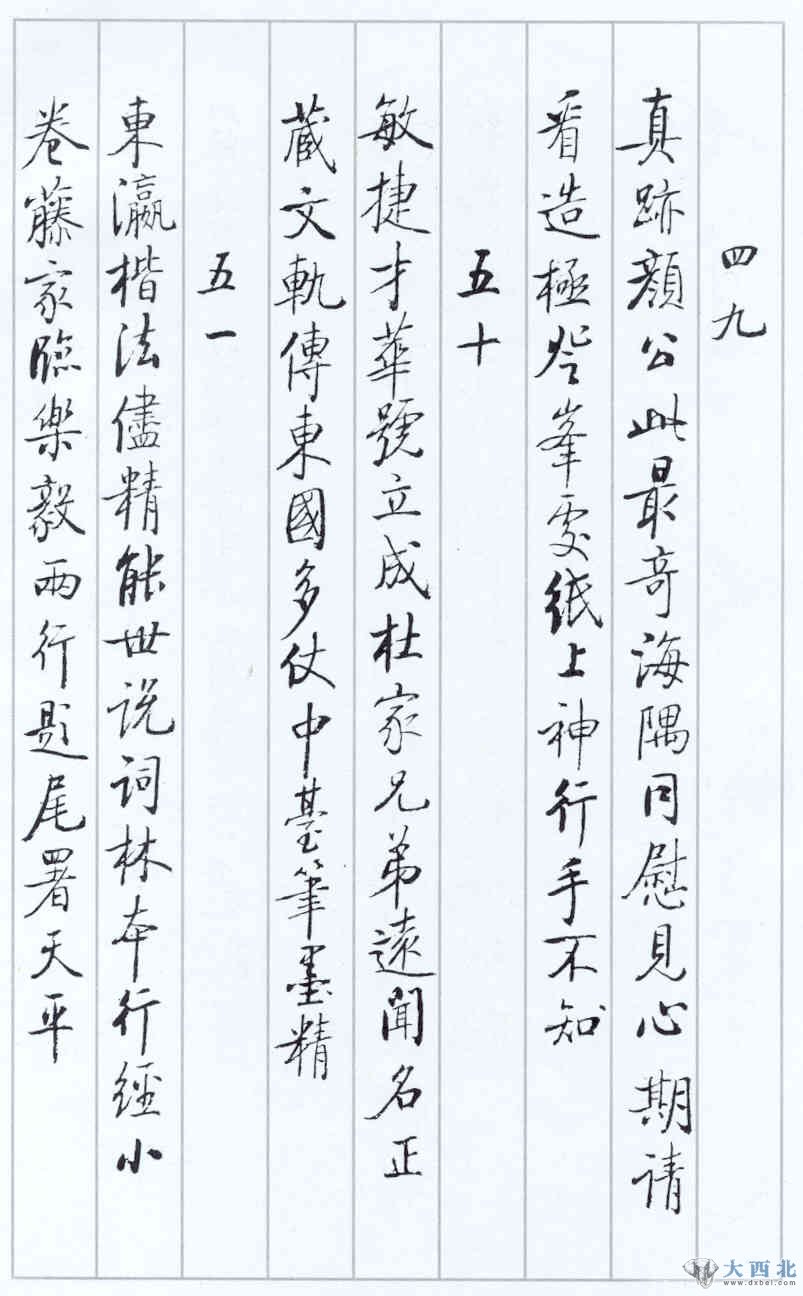 四九
真跡顏公此最奇海隅同慰見心期请
看造極登峯處紙上神行手不知
五十
敏捷才華號立成杜家兄弟遠聞名正
藏文軌傳東國多仗中臺筆墨精
五一
東瀛楷法儘精能世说词林本行經小
卷藤家臨樂毅兩行題尾署天平
大西北
www.dxbei.com